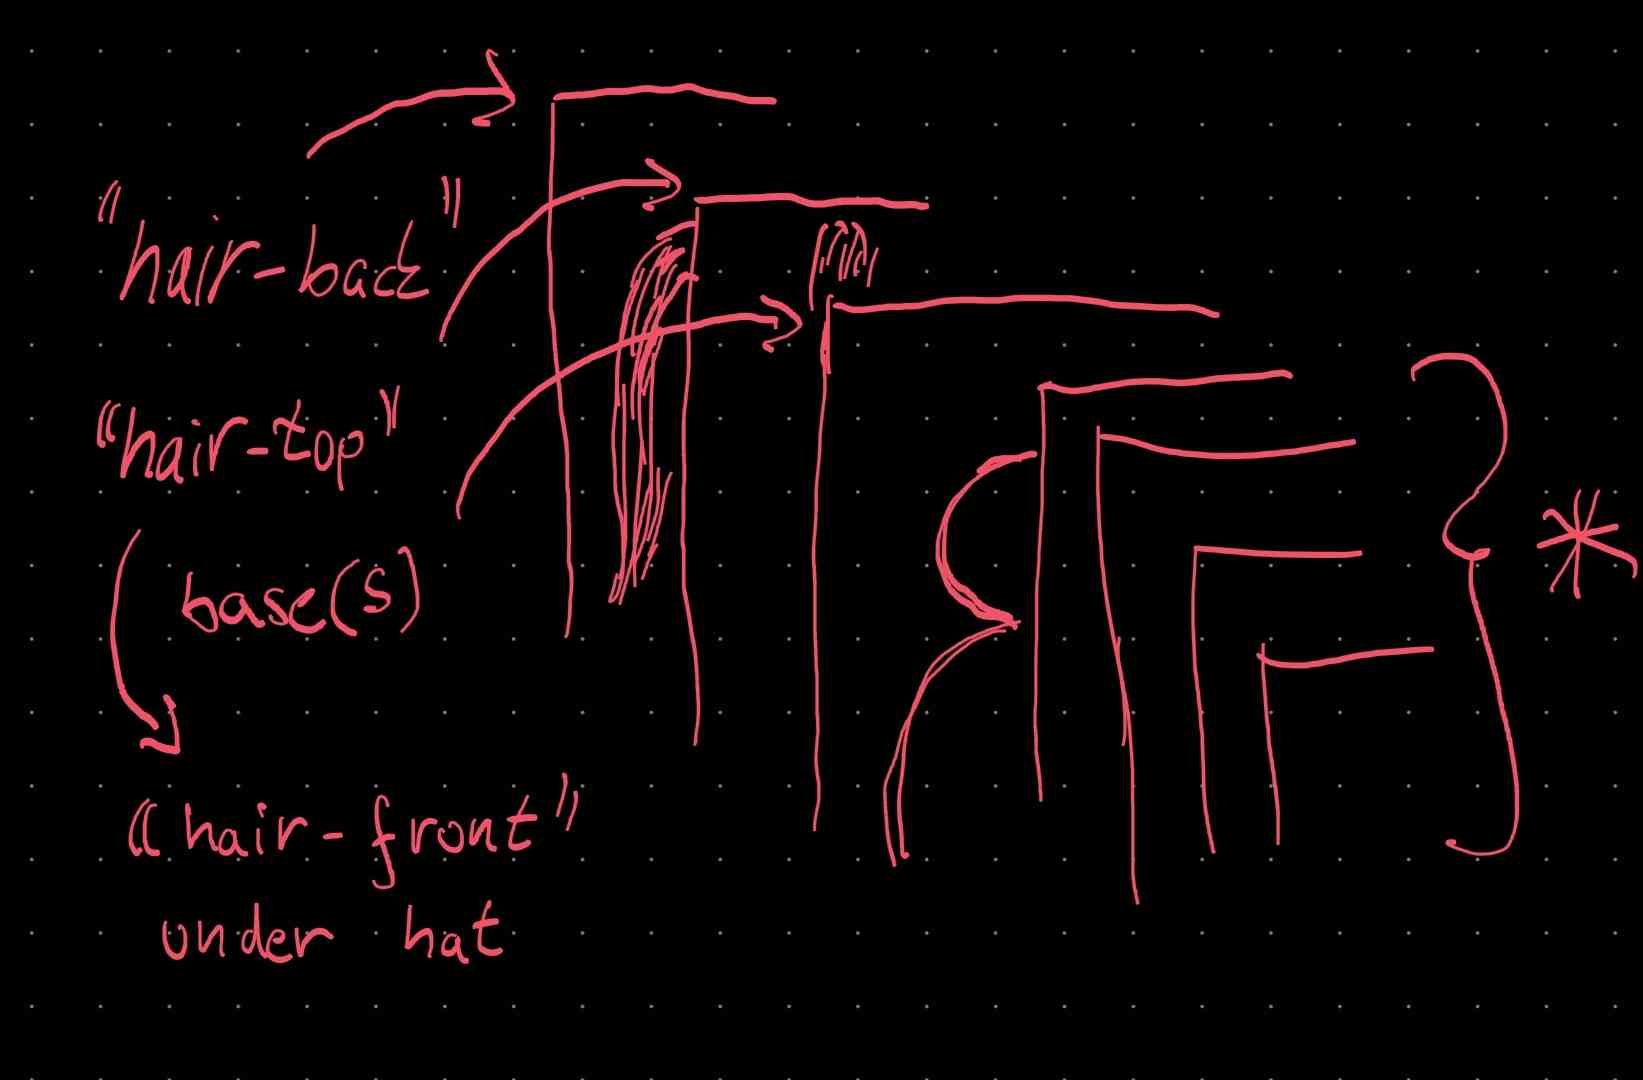 "hair-back"
"hair-top"
base(s)
"hair-front"
under hat
*